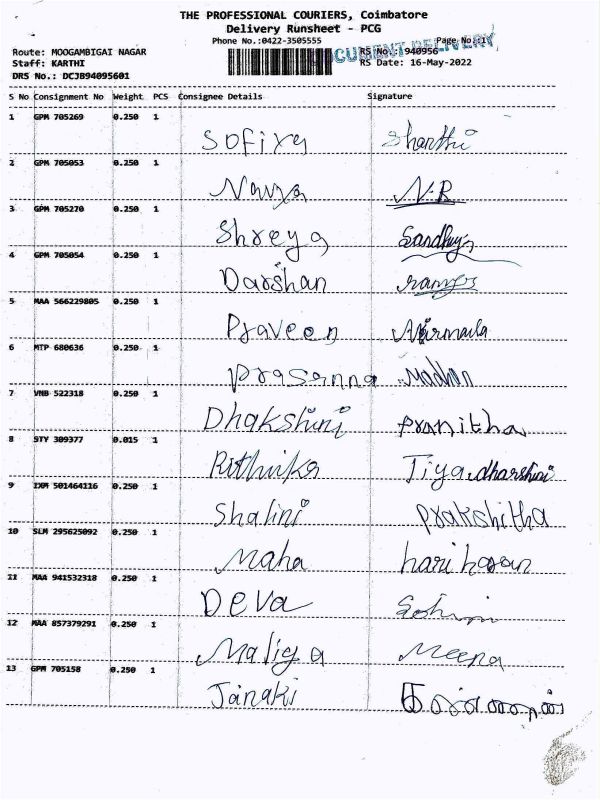 THE PROFESSIONAL COURIERS, Coimbatore
Delivery Runsheet - PCG
Phone No.:0422-3505555 Page No.:1
DOCUMENT DELIVERY
Route: MOOGAMBIGAI NAGAR RS No.: 940956
Staff: KARTHI RS Date: 16-May-2022
DRS No.: DCJB94095601
S No Consignment No Weight PCS Consignee Details Signature
1 GPM 705269 0.250 1
Sofiya Shanthi
2 GPM 705053 0.250 1
Navya N.R
3 GPM 705270 0.250 1
Shreya
4 GPM 705054 0.250 1
Darshan
5 MAA 566229805 0.250 1
Praveen Nirmala
6 MTP 680636 0.250 1
Prasanna Madhu
7 VNB 522318 0.250 1
Dhakshini Pranitha
8 STY 309377 0.015 1
Rithvika Jiyadharshini
9 IXM 501464116 0.250 1
Shalini Prakshitha
10 SLM 295625092 0.250 1
Maha hariharan
11 MAA 941532318 0.250 1
Deva
12 MAA 857379291 0.250 1
Maliga Meena
13 GPM 705158 0.250 1
Janaki